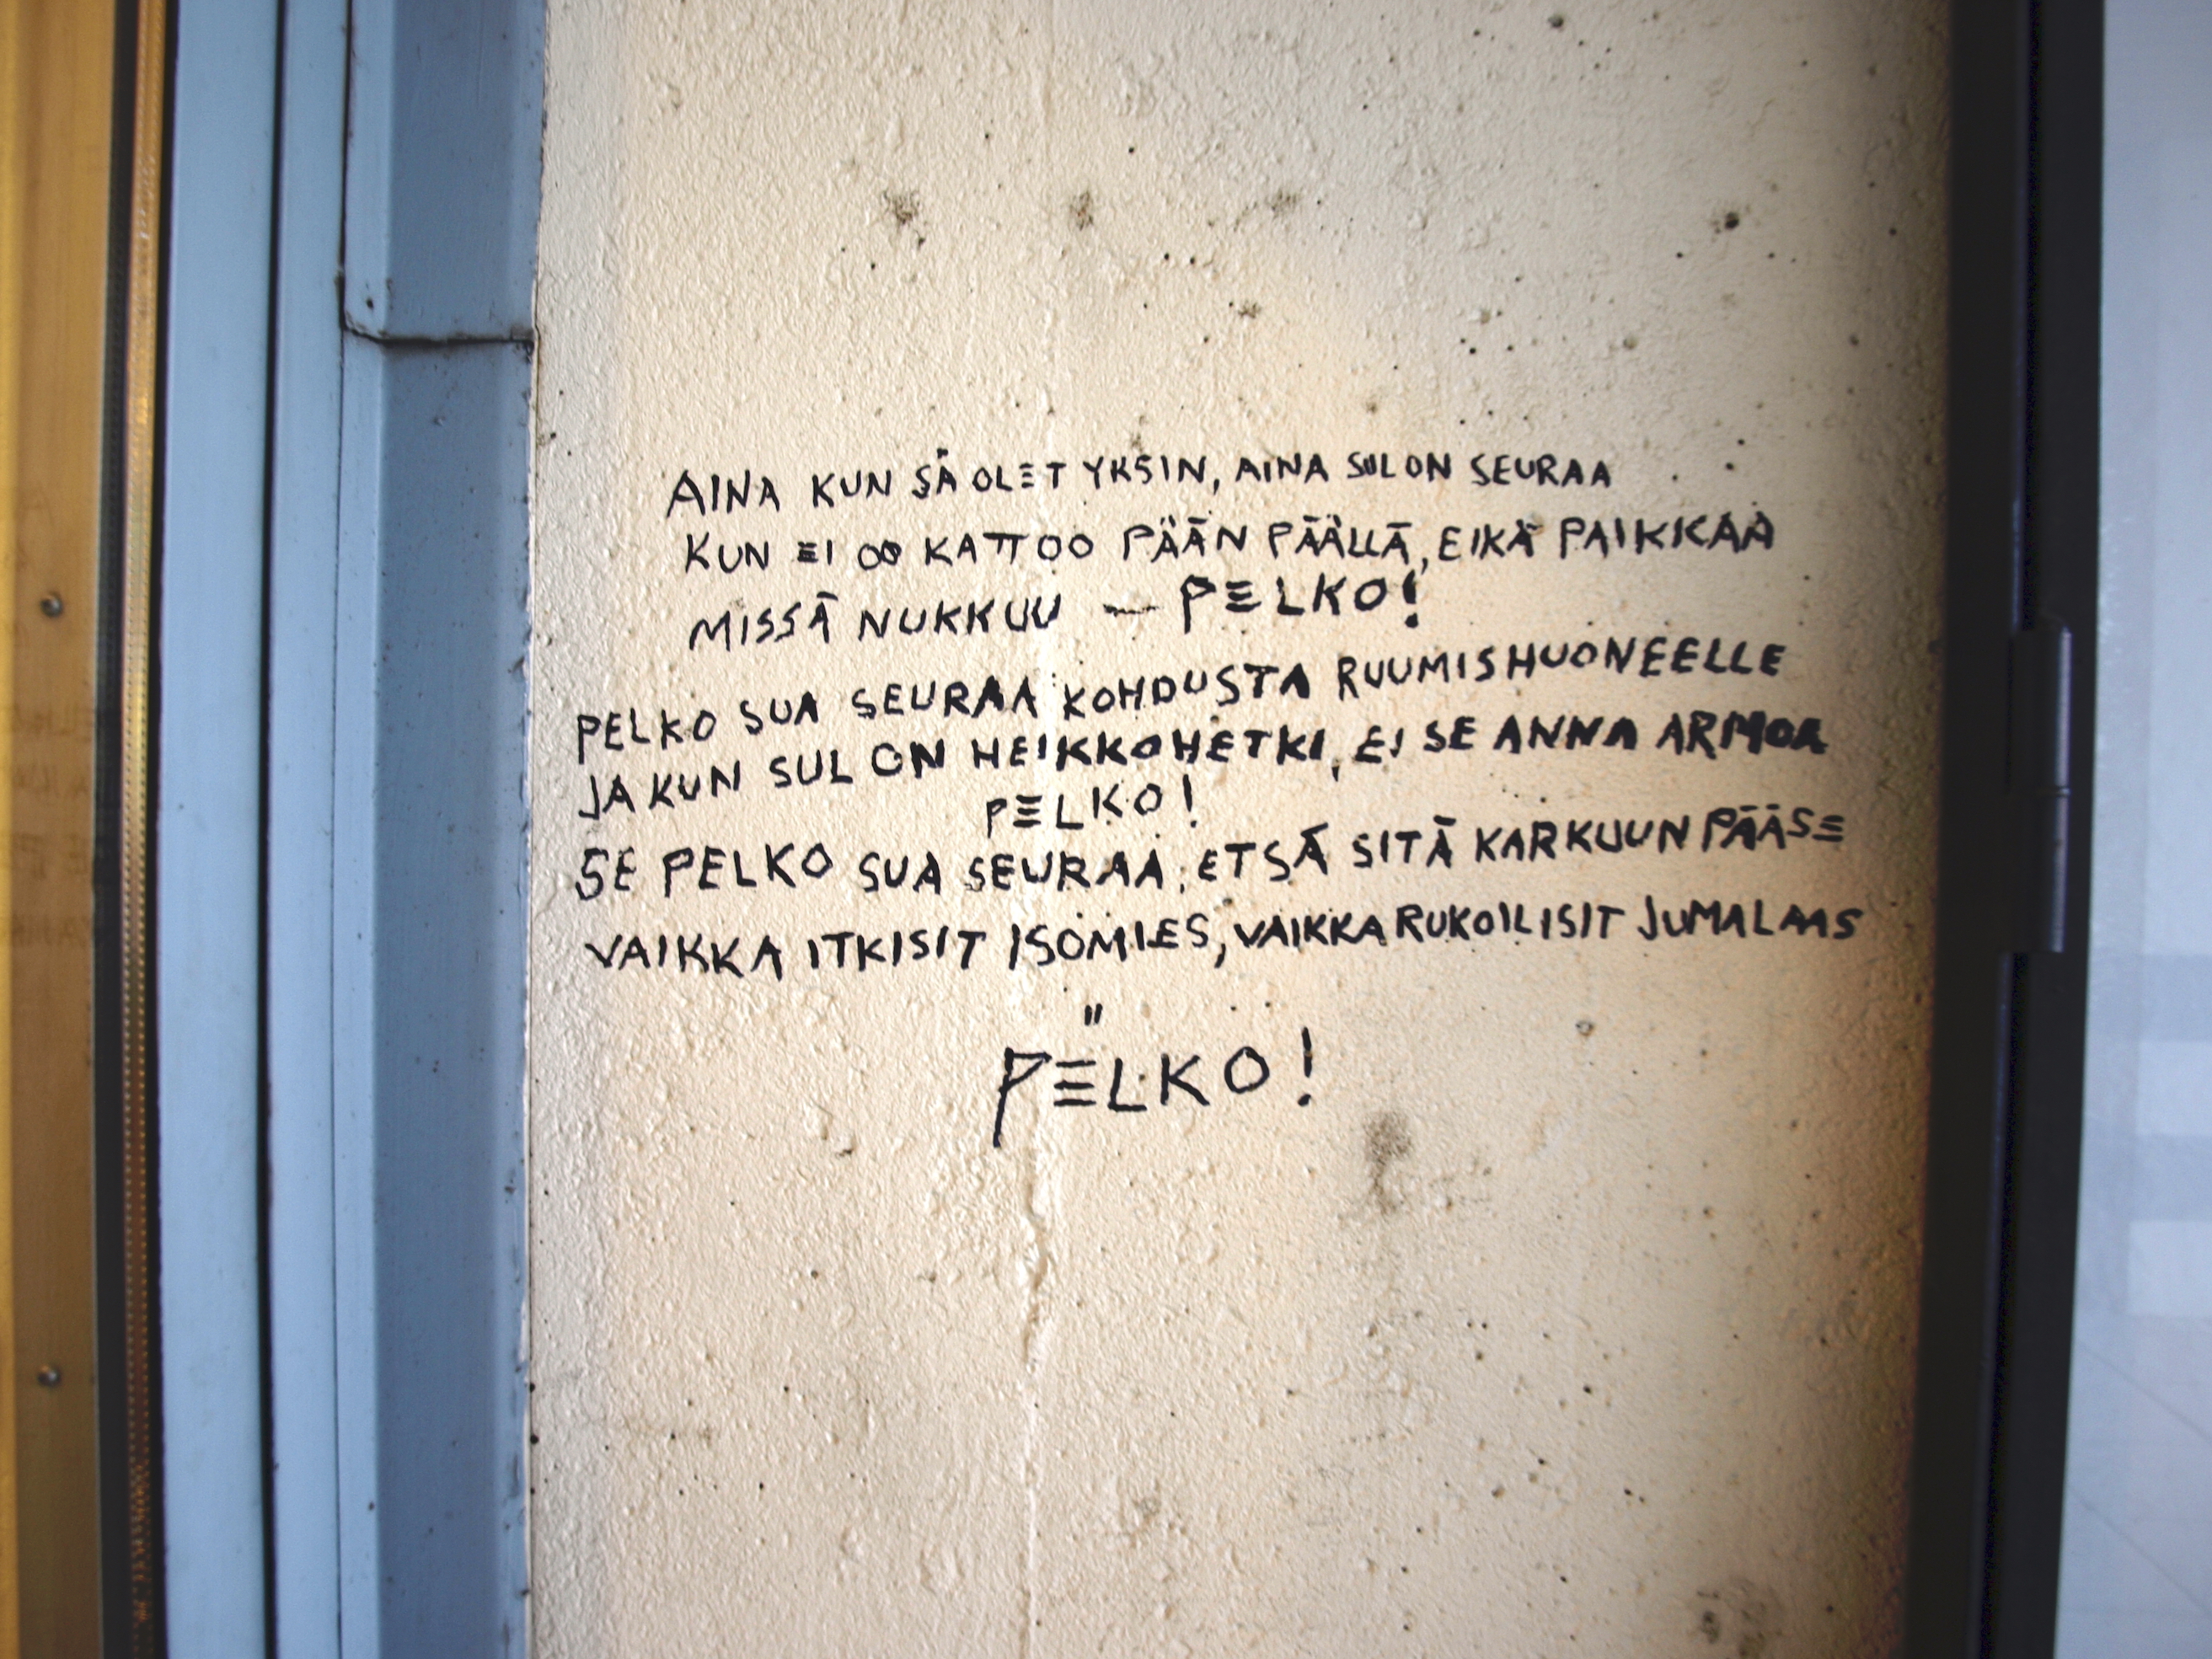 AINA KUN SÄ OLET YKSIN, AINA SUL ON SEURAA
KUN EI OO KATTOO PÄÄN PÄÄLLÄ, EIKÄ PAIKKAA
MISSÄ NUKKUU — PELKO!
PELKO SUA SEURAA KOHDUSTA RUUMISHUONEELLE
JA KUN SUL ON HEIKKO HETKI, EI SE ANNA ARMOA
PELKO!
SE PELKO SUA SEURAA, ETSÄ SITÄ KARKUUN PÄÄSE
VAIKKA ITKISIT ISOMIES, VAIKKA RUKOILISIT JUMALAAS
"
PELKO!